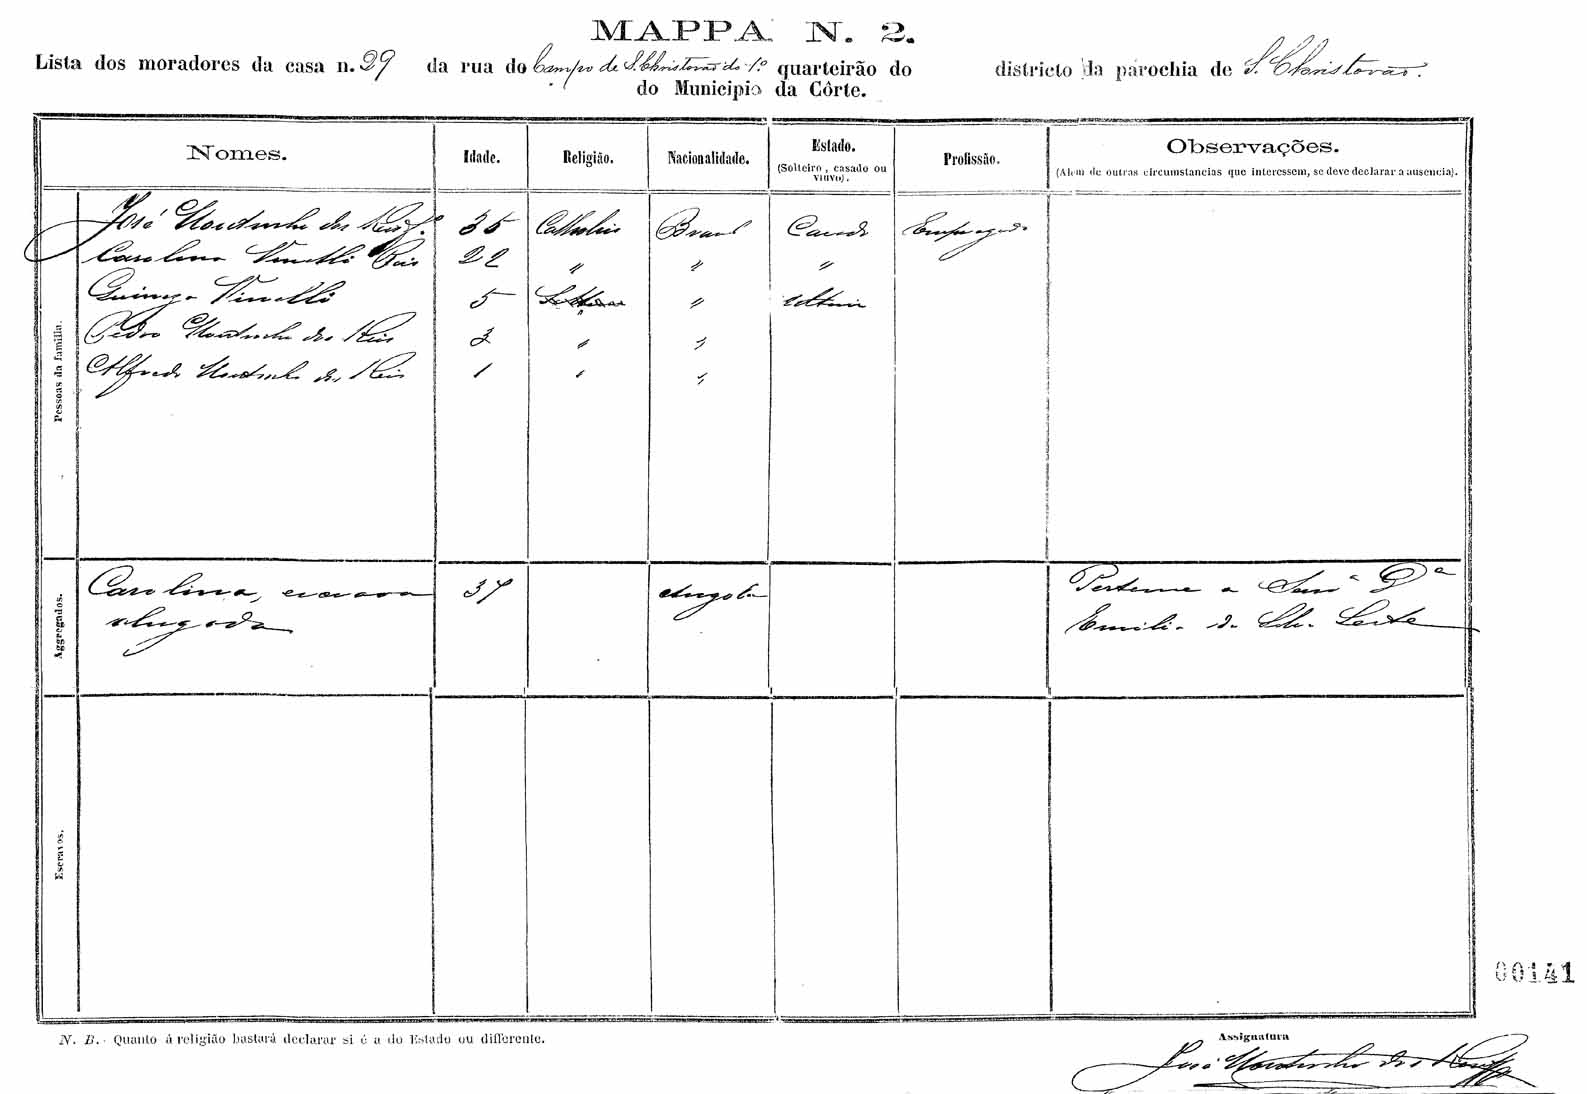 MAPPA N. 2.
Lista dos moradores da casa n. 29 da rua do Campo de S. Christovão do 1.º quarteirão do districto da parochia de S. Christovão.
do Municipio da Côrte.
Nomes. Idade. Religião. Nacionalidade. Estado. (Solteiro, casado ou viuvo). Profissão. Observações. (Alem de outras circumstancias que interessem, se deve declarar a ausencia).
Pessoas da familia.
José Moutinho dos Reis 35 Catholico Brasil Casado Empregado
Carolina Vinelli Reis 22 " " "
Vinelli 5 " " solteiro
Pedro Moutinho dos Reis 3 " "
Alfredo Moutinho dos Reis 1 " "
Aggregados.
Carolina, escrava 37 Angola Pertence a D.ª
alugada Emilia da Leite
Escravos.
00141
N. B. Quanto á religião bastará declarar si é a do Estado ou differente.
Assignatura
José Moutinho dos Reis